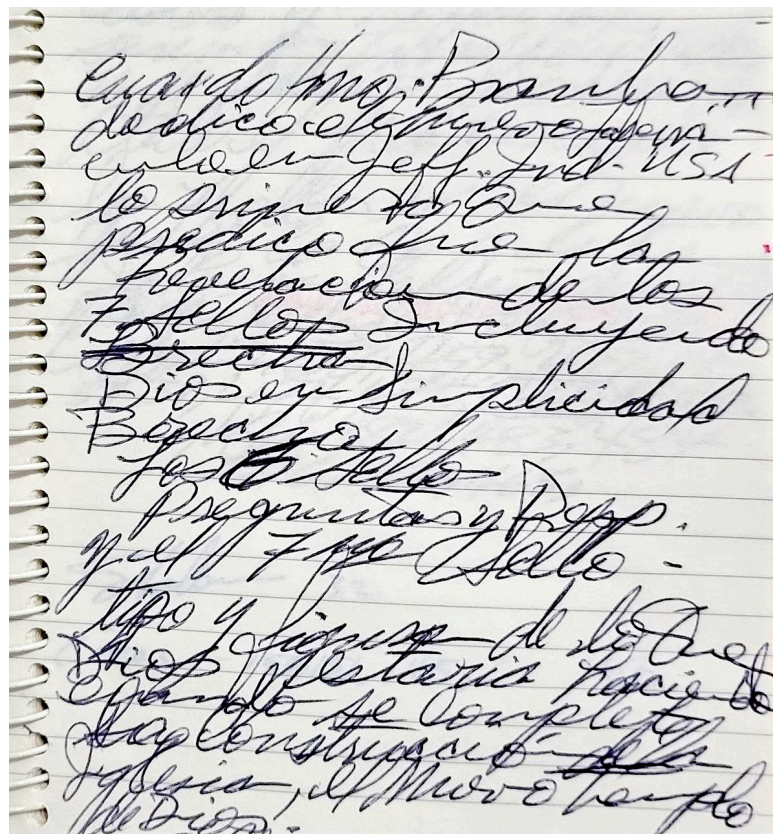 Cuando Hno. Branham
dedico el nuevo taberna-
culo en Jeff. Ind. USA
lo primero que
predico fue la
Revelacion de los
7 Sellos Incluyendo
Brecha
Dios en Simplicidad
Brecha
Los 6 Sellos
Preguntas y Resp.
y el 7mo Sello -
tipo y figura de lo Que
Dios estaria haciendo
cuando se complete
la construcción de la
Iglesia, el Nuevo templo
de Dios.